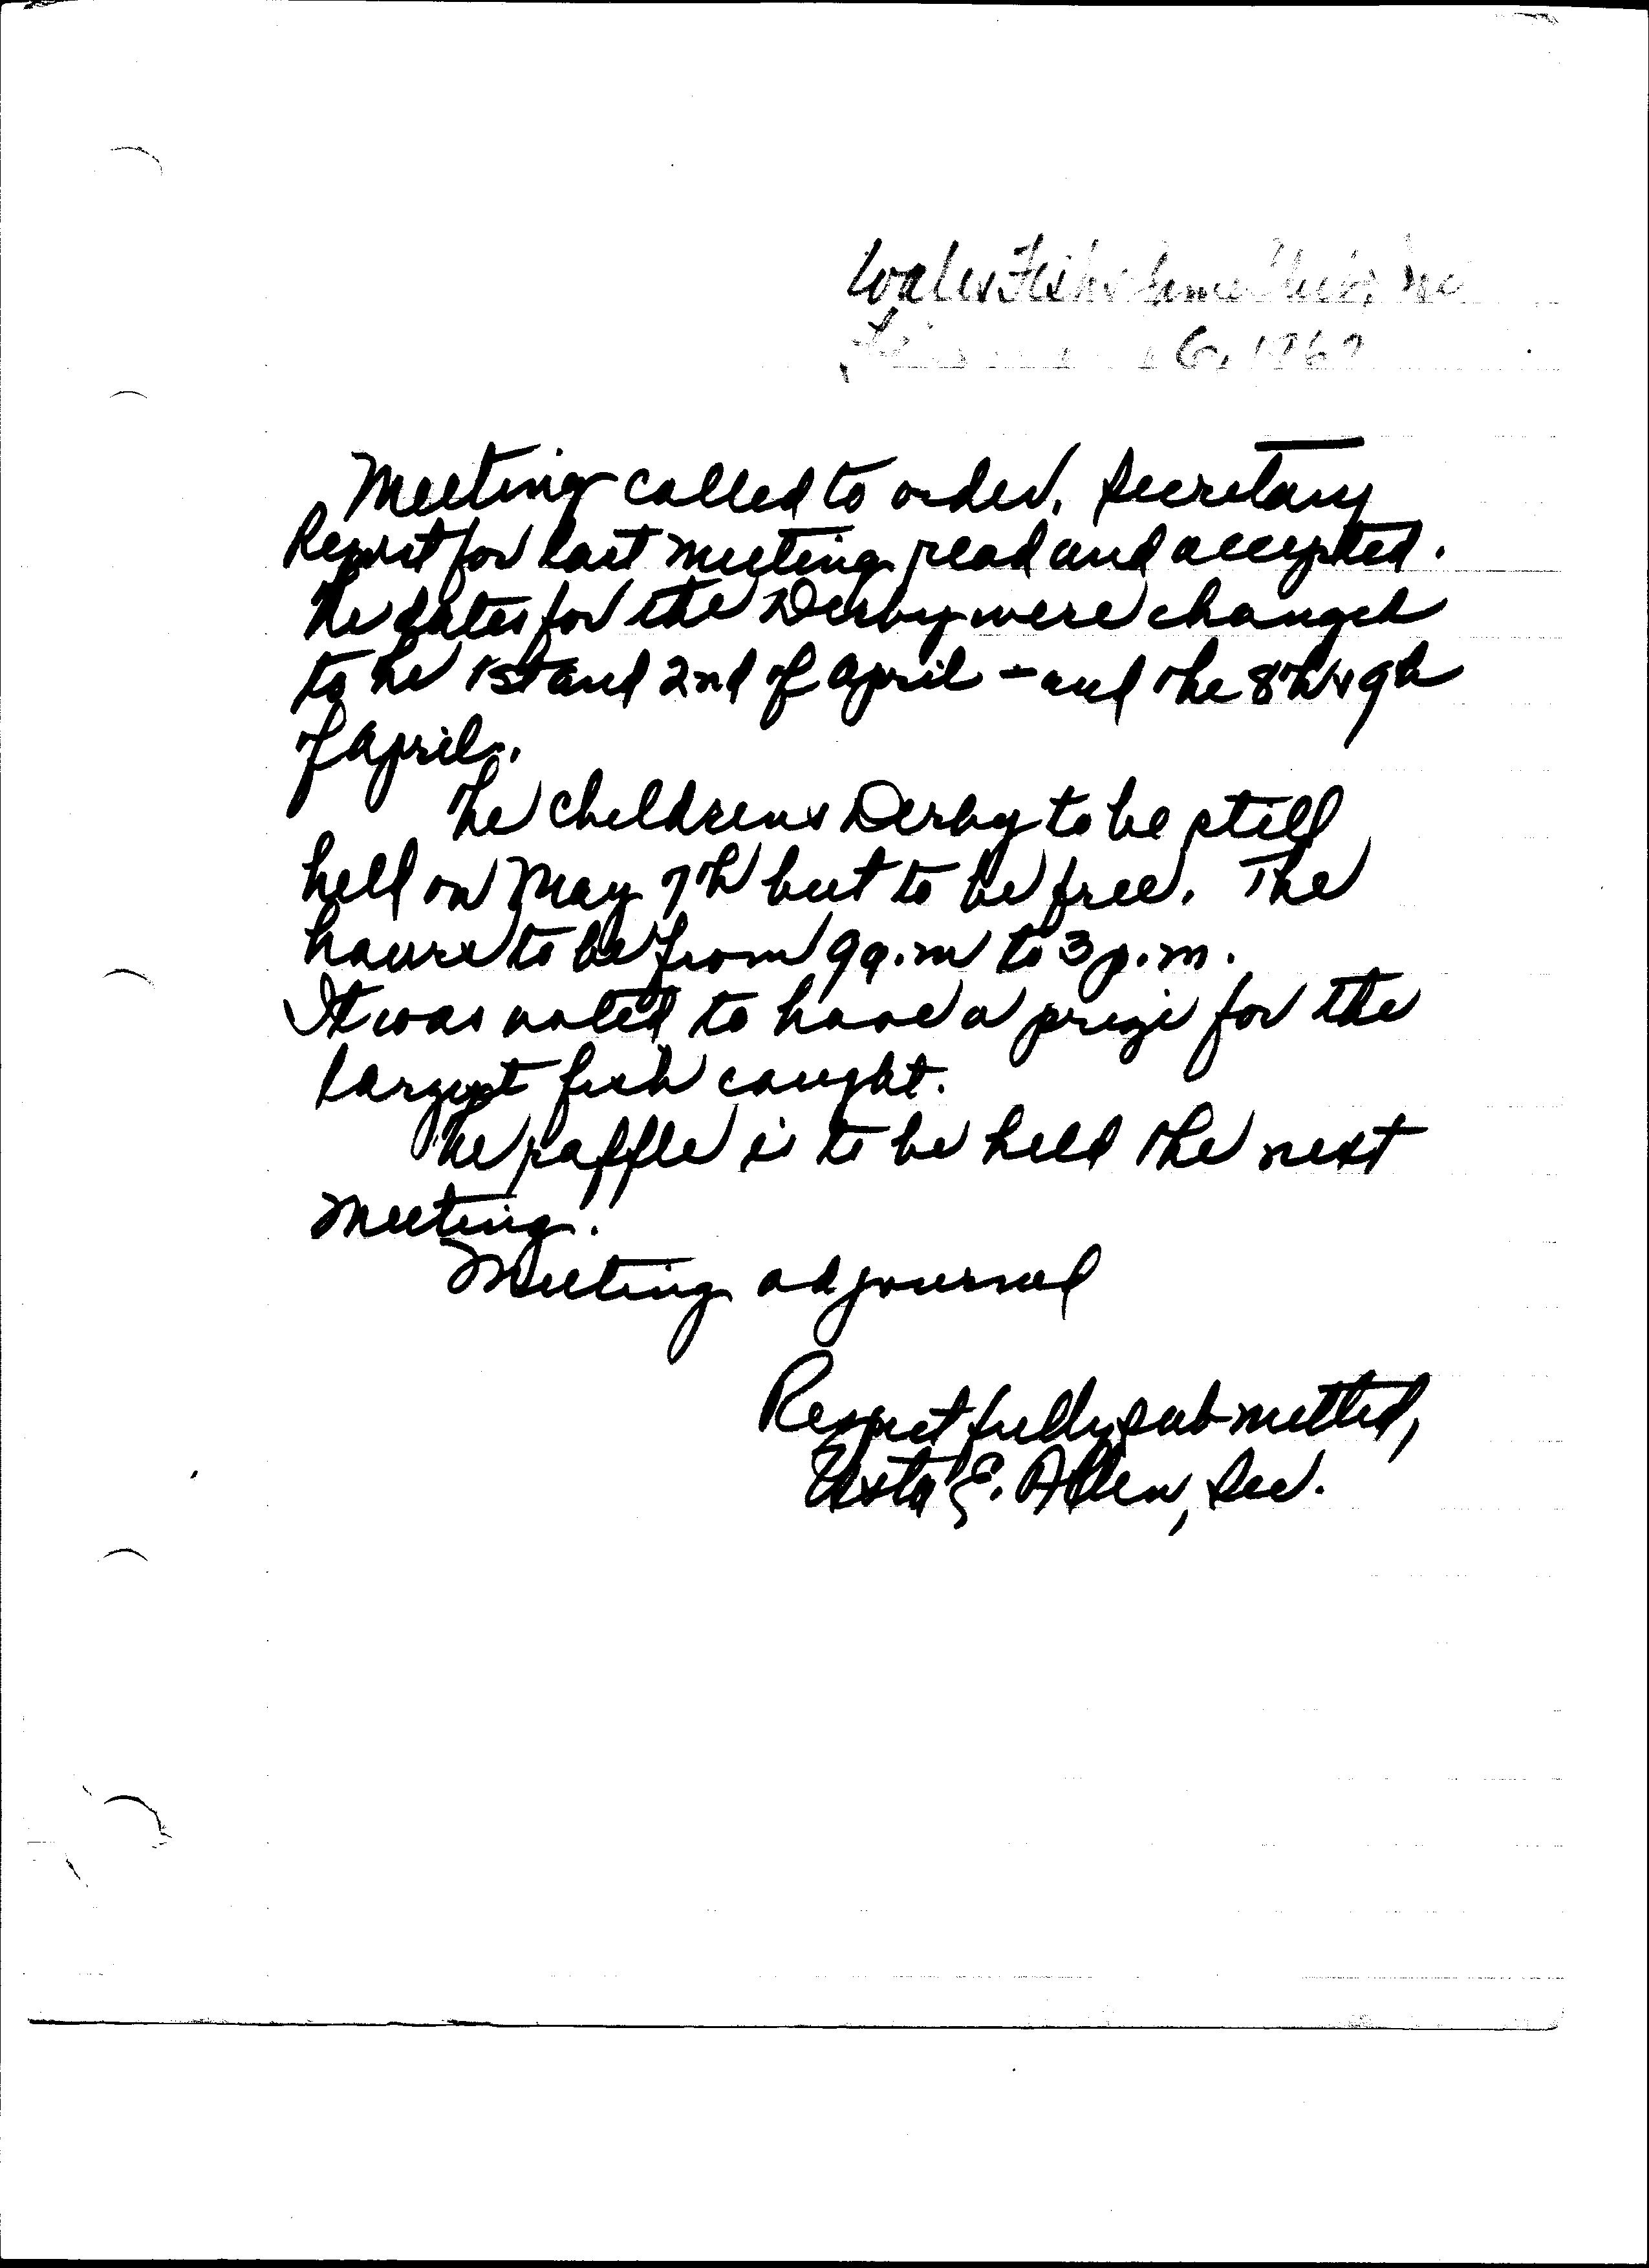 Wales Fish & Game Club, Inc
6, 1967
Meeting called to order. Secretary
Report for last meeting read and accepted.
The dates for the Derby were changed
to the 1st and 2nd of April - and the 8th & 9th
of April.
The Childrens Derby to be still
held on May 7th but to be free. The
hours to be from 9 a.m to 3 p.m.
It was voted to have a prize for the
largest fish caught.
The raffle is to be held the next
meeting.
Meeting adjourned
Respectfully submitted,
E. Allen, Sec.